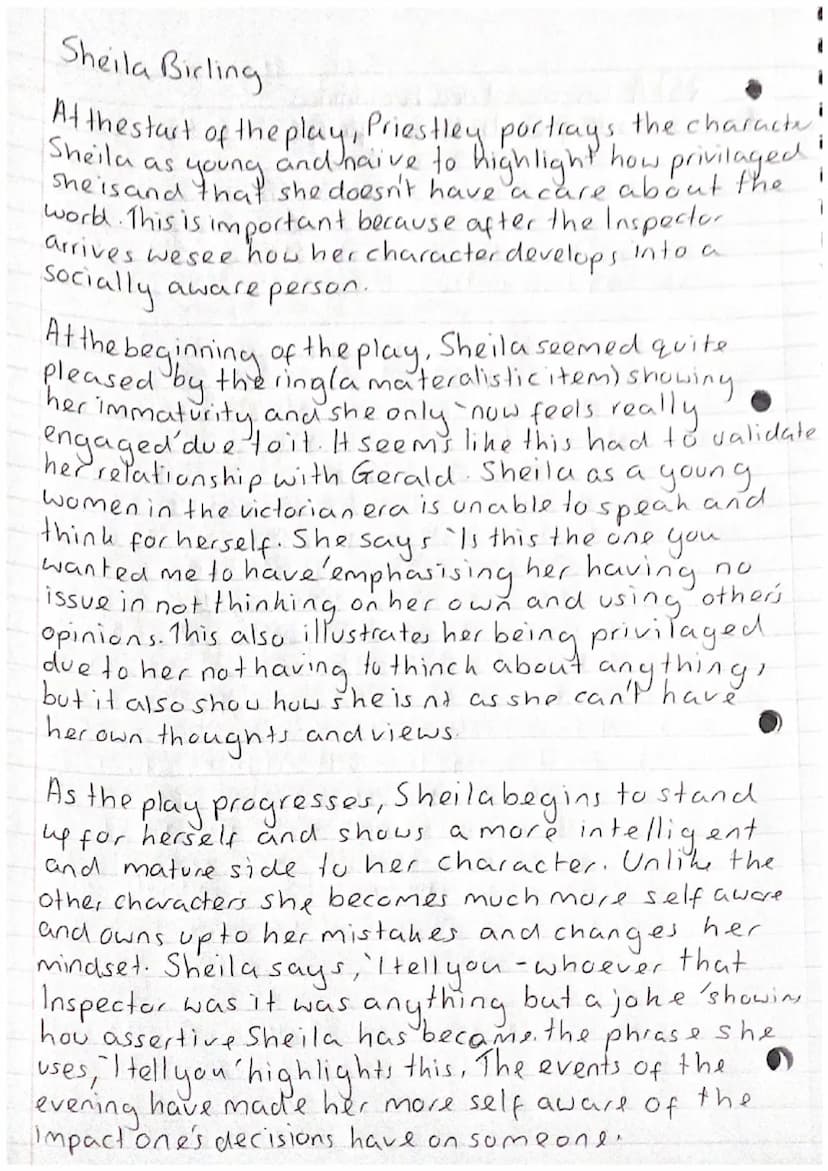 Sheila Birling
At the start of the play, Priestley portrays the characte
Sheila as young and naive to highlight how privilaged
she is and that she doesn't have a care about the
world. This is important because after the Inspector
arrives we see how her character develops into a
socially aware person.
At the beginning of the play, Sheila seemed quite
pleased by the ring (a materalistic item) showing
her immaturity and she only 'now feels really
engaged' due to it. It seems like this had to validate
her relationship with Gerald. Sheila as a young
women in the victorian era is unable to speak and
think for herself. She says 'Is this the one you
wanted me to have' emphasising her having no
issue in not thinking on her own and using other's
opinions. This also illustrates her being privilaged
due to her not having to thinch about anything,
but it also show how she is nt as she can't have
her own thoughts and views.
As the play progresses, Sheila begins to stand
up for herself and shows a more intelligent
and mature side to her character. Unlike the
other characters she becomes much more self aware
and owns up to her mistakes and changes her
mindset. Sheila says, 'I tell you - whoever that
Inspector was it was anything but a joke' showin
how assertive Sheila has become. the phrase she
uses, 'I tell you' highlights this. The events of the
evening have made her more self aware of the
impact one's decisions have on someone.